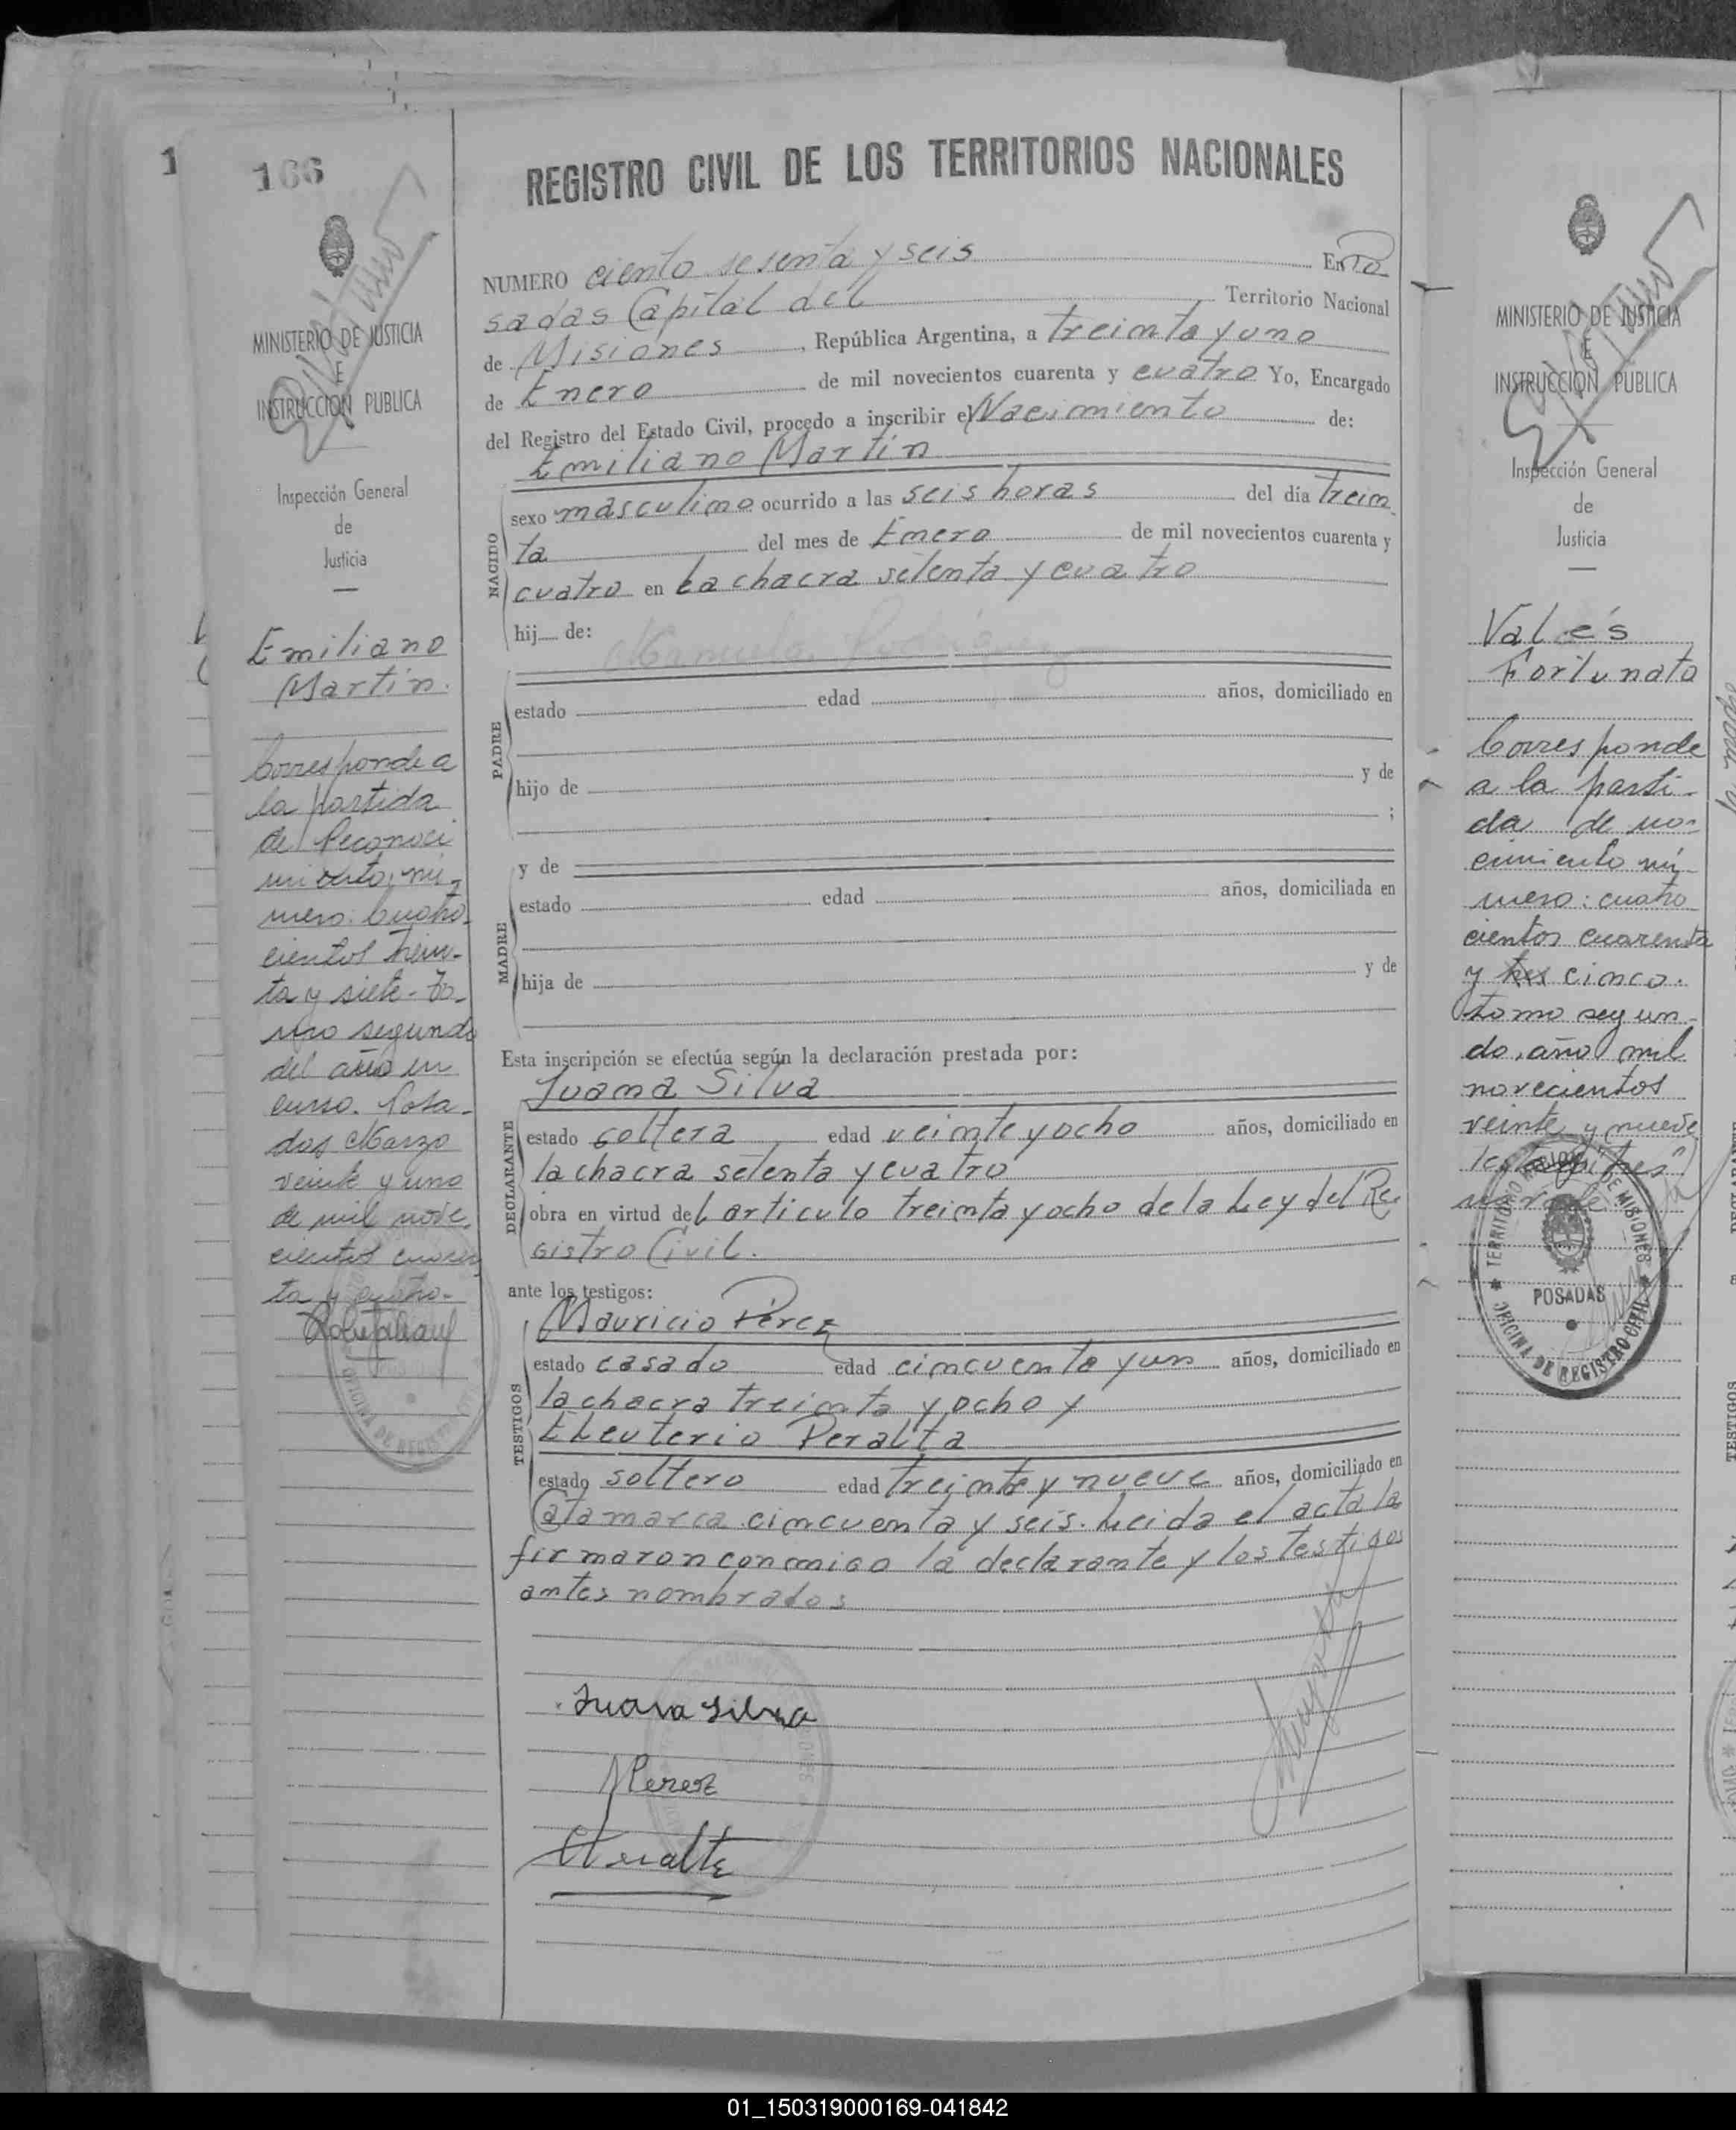 166
MINISTERIO DE JUSTICIA
E
INSTRUCCION PUBLICA
Inspección General
de
Justicia
Emiliano
Martín.
Corresponde a
la partida
de Reconoci
miento, nú-
mero: Cuatro-
cientos trein-
ta y siete - To-
mo segundo
del año en
curso. Posa-
das Marzo
veinte y uno
de mil nove
cientos cuaren
ta y cuatro-
REGISTRO CIVIL DE LOS TERRITORIOS NACIONALES
NUMERO ciento sesenta y seis En Po
sadas Capital del Territorio Nacional
de Misiones, República Argentina, a treinta y uno
de Enero de mil novecientos cuarenta y cuatro Yo, Encargado
del Registro del Estado Civil, procedo a inscribir el Nacimiento de:
Emiliano Martín
NACIDO
sexo masculino ocurrido a las seis horas del día trein
ta del mes de Enero de mil novecientos cuarenta y
cuatro en La chacra setenta y cuatro
hij de:
Manuela Rodriguez
PADRE
estado edad años, domiciliado en
hijo de y de
;
y de
MADRE
estado edad años, domiciliada en
hija de y de
Esta inscripción se efectúa según la declaración prestada por:
Juana Silva
DECLARANTE
estado soltera edad veinte y ocho años, domiciliado en
la chacra setenta y cuatro
obra en virtud del articulo treinta y ocho de la Ley del Re
gistro Civil.
ante los testigos:
Mauricio Pérez
TESTIGOS
estado casado edad cincuenta y un años, domiciliado en
la chacra treinta y ocho y
Eleuterio Peralta
estado soltero edad treinta y nueve años, domiciliado en
Catamarca cincuenta y seis. Leida el acta la
firmaron conmigo la declarante y los testigos
antes nombrados
Juana Silva
MPerez
EPeralta
MINISTERIO DE JUSTICIA
E
INSTRUCCION PUBLICA
Inspección General
de
Justicia
Valés
Fortunato
Corresponde
a la parti-
da de na-
cimiento nú-
mero: cuatro
cientos cuarenta
y tres cinco.
tomo segun-
do, año mil
novecientos
veinte y nueve
TERRITORIO NACIONAL DE MISIONES
POSADAS
OFICINA DE REGISTRO CIVIL
TESTIGOS
01_150319000169-041842